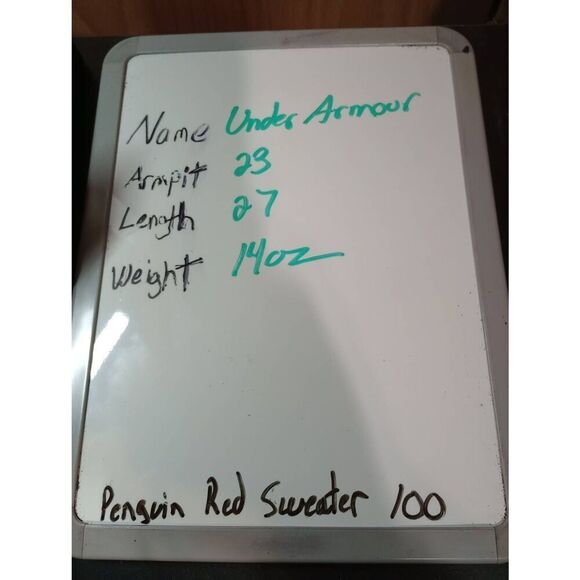 Name Under Armour
Armpit 23
Length 27
Weight 14oz
Penguin Red Sweater 100